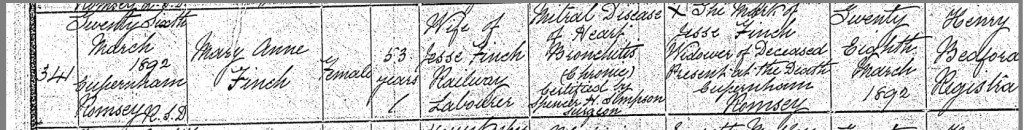 341
Twenty Sixth
March
1892
Cupernham
Romsey R.S.D
Mary Anne
Finch
Female
53
years
Wife of
Jesse Finch
Railway
Labourer
Mitral Disease
of Heart
Bronchitis
(Chronic)
Certified by
Spencer H. Simpson
Surgeon
X The Mark of
Jesse Finch
Widower of Deceased
Present at the Death
Cupernham
Romsey
Twenty
Eighth
March
1892
Henry
Bedford
Registra